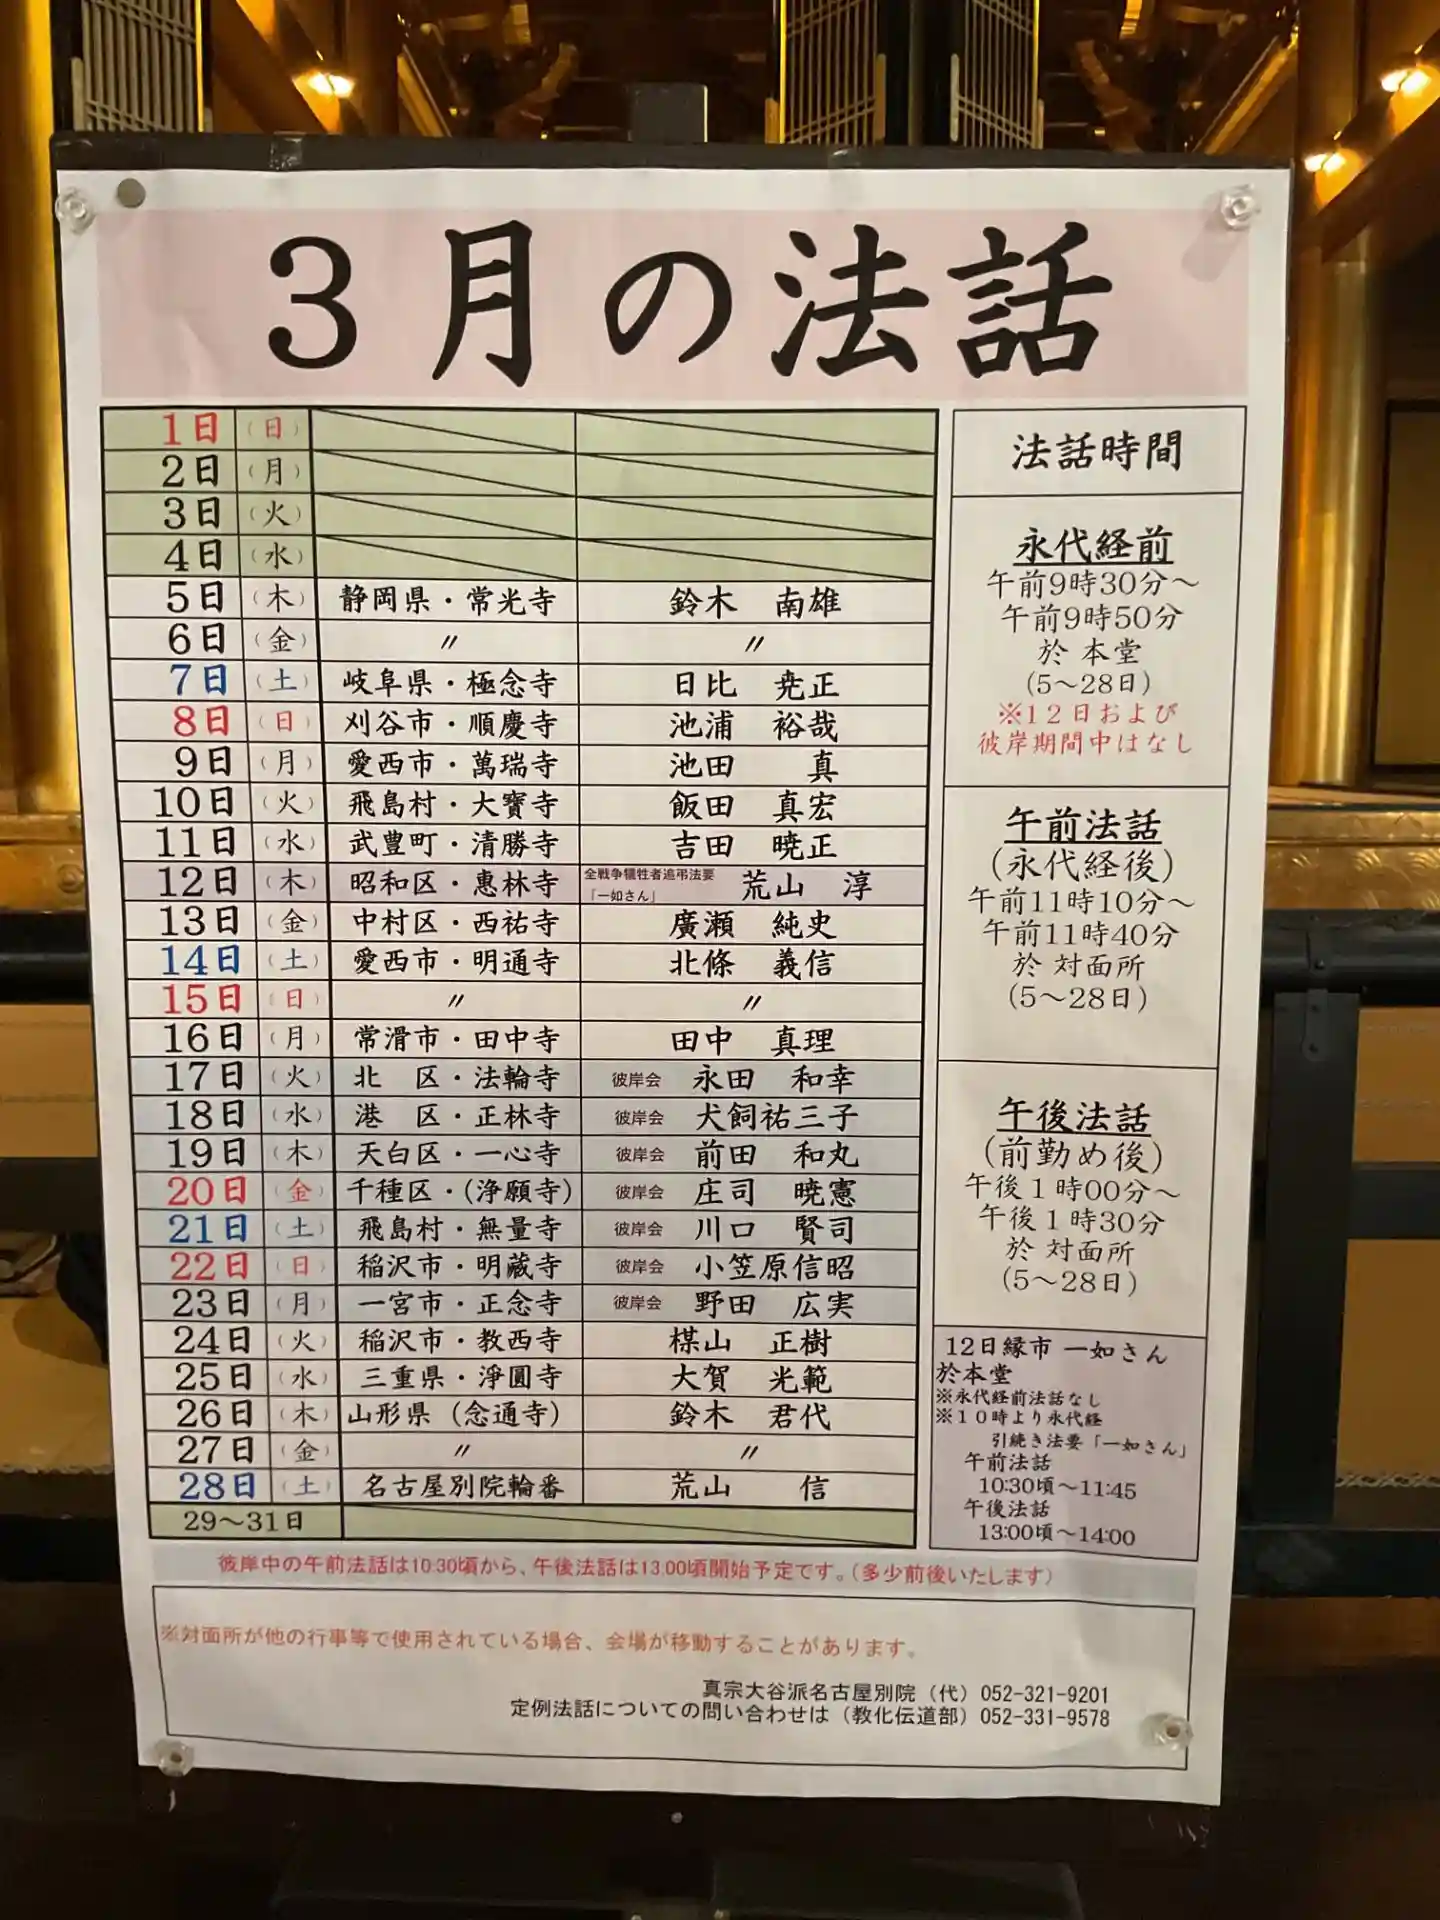 3月の法話
1日 (日)
2日 (月)
3日 (火)
4日 (水)
5日 (木) 静岡県・常光寺 鈴木 南雄
6日 (金) 〃 〃
7日 (土) 岐阜県・極念寺 日比 尭正
8日 (日) 刈谷市・順慶寺 池浦 裕哉
9日 (月) 愛西市・萬瑞寺 池田 真
10日 (火) 飛島村・大寶寺 飯田 真宏
11日 (水) 武豊町・清勝寺 吉田 暁正
12日 (木) 昭和区・惠林寺 全戦争犠牲者追弔法要「一如さん」 荒山 淳
13日 (金) 中村区・西祐寺 廣瀬 純史
14日 (土) 愛西市・明通寺 北條 義信
15日 (日) 〃 〃
16日 (月) 常滑市・田中寺 田中 真理
17日 (火) 北 区・法輪寺 彼岸会 永田 和幸
18日 (水) 港 区・正林寺 彼岸会 犬飼祐三子
19日 (木) 天白区・一心寺 彼岸会 前田 和丸
20日 (金) 千種区・(浄願寺) 彼岸会 庄司 暁憲
21日 (土) 飛島村・無量寺 彼岸会 川口 賢司
22日 (日) 稲沢市・明蔵寺 彼岸会 小笠原信昭
23日 (月) 一宮市・正念寺 彼岸会 野田 広実
24日 (火) 稲沢市・教西寺 楳山 正樹
25日 (水) 三重県・淨圓寺 大賀 光範
26日 (木) 山形県（念通寺） 鈴木 君代
27日 (金) 〃 〃
28日 (土) 名古屋別院輪番 荒山 信
29～31日
法話時間
永代経前
午前9時30分～
午前9時50分
於 本堂
(5～28日)
※12日および
彼岸期間中はなし
午前法話
(永代経後)
午前11時10分～
午前11時40分
於 対面所
(5～28日)
午後法話
(前勤め後)
午後1時00分～
午後1時30分
於 対面所
(5～28日)
12日縁市 一如さん
於本堂
※永代経前法話なし
※10時より永代経
引続き法要「一如さん」
午前法話
10:30頃～11:45
午後法話
13:00頃～14:00
彼岸中の午前法話は10:30頃から、午後法話は13:00頃開始予定です。（多少前後いたします）
※対面所が他の行事等で使用されている場合、会場が移動することがあります。
真宗大谷派名古屋別院（代）052-321-9201
定例法話についての問い合わせは（教化伝道部）052-331-9578